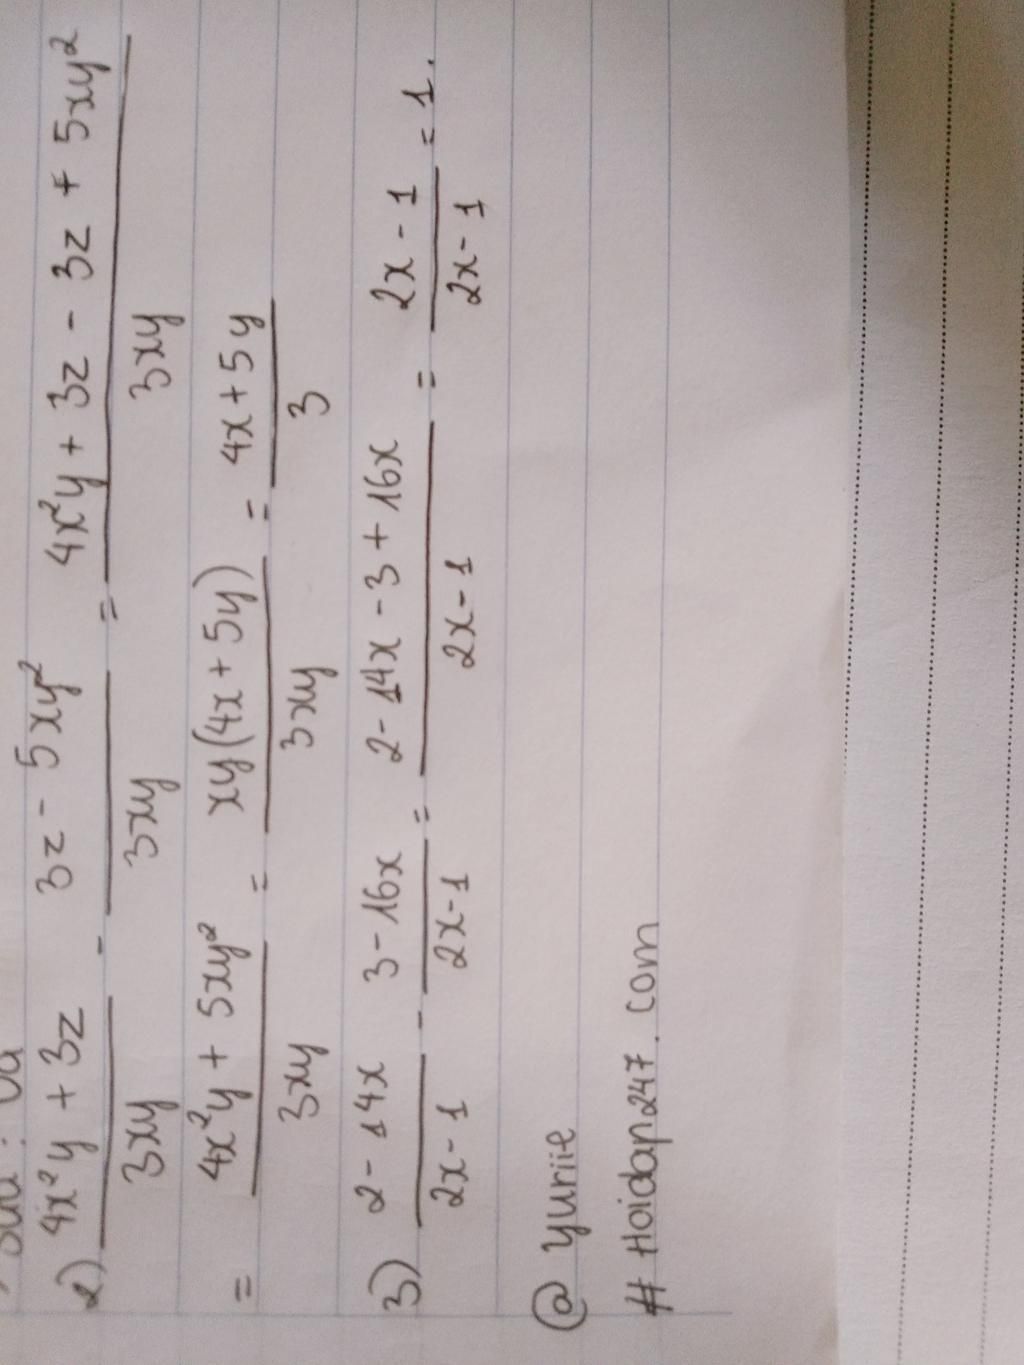 2) 4x²y + 3z / 3xy - 3z - 5xy² / 3xy = 4x²y + 3z - 3z + 5xy² / 3xy
= 4x²y + 5xy² / 3xy = xy(4x + 5y) / 3xy = 4x + 5y / 3
3) 2 - 14x / 2x - 1 - 3 - 16x / 2x - 1 = 2 - 14x - 3 + 16x / 2x - 1 = 2x - 1 / 2x - 1 = 1.
@ yuriie
# Hoidap247.com